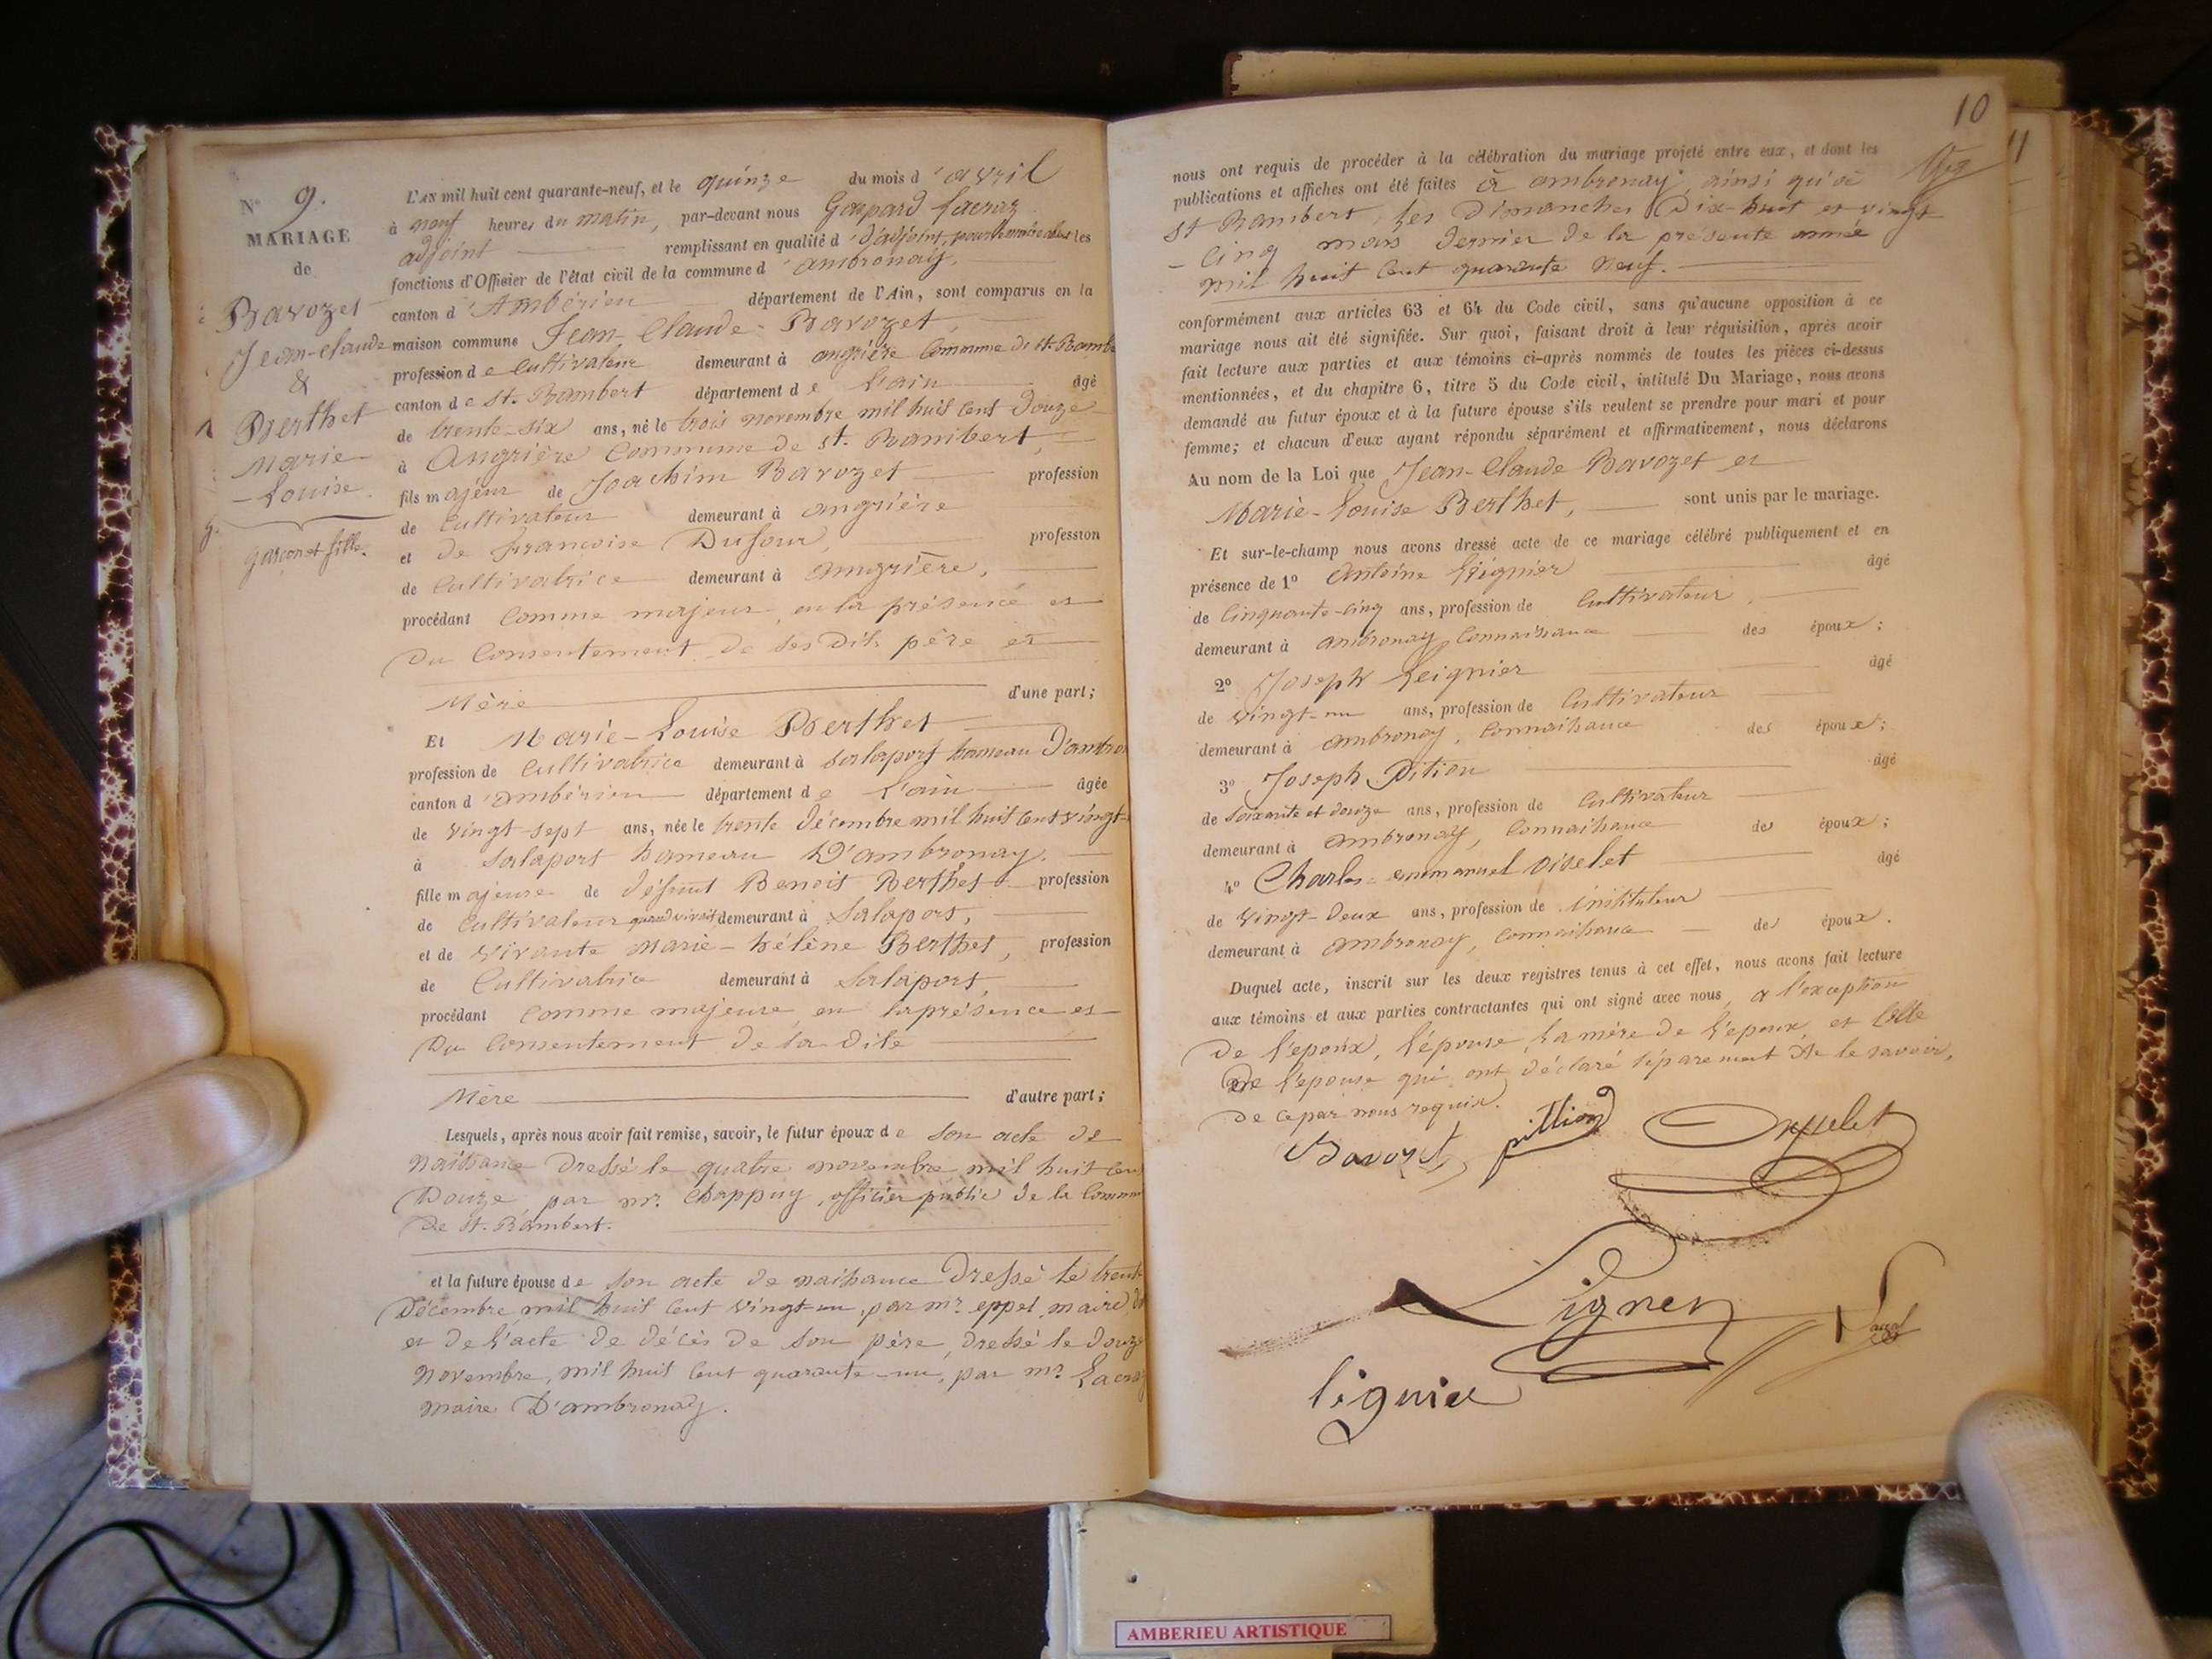 N° 9.
MARIAGE
de
Bavozet
Jean-Claude
&
Berthet
Marie-
-Louise.
garçon et fille.
L'AN mil huit cent quarante-neuf, et le quinze du mois d'avril
à neuf heures du matin, par-devant nous Gaspard Lacraz
adjoint remplissant en qualité d'adjoint, pour le maire absent les
fonctions d'Officier de l'état civil de la commune d'ambronay,
canton d'Ambérieu département de l'Ain, sont comparus en la
maison commune Jean-Claude Bavozet,
profession de cultivateur demeurant à angrière Commune de St-Ramb
canton de St. Rambert département de l'ain âgé
de trente-six ans, né le trois novembre mil huit cent douze
à Angrière Commune de St. Rambert,
fils majeur de Joachim Bavozet profession
de cultivateur demeurant à angrière
et de Francoise Dufour, profession
de cultivatrice demeurant à angrière,
procédant comme majeur, en la présence et
du Consentement de ses dits père et
Mère d'une part;
Et Marie-Louise Berthet
profession de cultivatrice demeurant à Salaport hameau d'ambro
canton d'ambérieu département de l'ain âgée
de vingt-sept ans, née le trente décembre mil huit cent vingt-
à Salaport hameau D'ambronay.
fille majeure de défunt Benoit Berthet profession
de cultivateur quand vivait demeurant à Salaport,
et de vivante Marie-hélène Berthet, profession
de Cultivatrice demeurant à Salaport,
procédant comme majeure, en la présence et
du Consentement de la dite
Mère d'autre part;
Lesquels, après nous avoir fait remise, savoir, le futur époux de son acte de
naissance dressé le quatre novembre mil huit cent
Douze par mr. Chappuy, officier public de la Commun
de St. Rambert.
et la future épouse de son acte de naissance dressé le trente
Décembre mil huit cent vingt-un, par mr. eppel, maire
et de l'acte de décès de son père, dressé le douze
novembre, mil huit cent quarante-un, par mr. Lacra
maire D'ambronay.
10
11
nous ont requis de procéder à la célébration du mariage projeté entre eux, et dont les
publications et affiches ont été faites à ambronay, ainsi qu'à
St Rambert, les Dimanches Dix-huit et vingt
-cinq mars dernier de la présente année
mil huit cent quarante neuf.
conformément aux articles 63 et 64 du Code civil, sans qu'aucune opposition à ce
mariage nous ait été signifiée. Sur quoi, faisant droit à leur réquisition, après avoir
fait lecture aux parties et aux témoins ci-après nommés de toutes les pièces ci-dessus
mentionnées, et du chapitre 6, titre 5 du Code civil, intitulé Du Mariage, nous avons
demandé au futur époux et à la future épouse s'ils veulent se prendre pour mari et pour
femme; et chacun d'eux ayant répondu séparément et affirmativement, nous déclarons
Au nom de la Loi que Jean-Claude Bavozet et
Marie-Louise Berthet, sont unis par le mariage.
Et sur-le-champ nous avons dressé acte de ce mariage célébré publiquement et en
présence de 1° Antoine Leignier âgé
de Cinquante-cinq ans, profession de Cultivateur,
demeurant à ambronay, Connaissance des époux;
2° Joseph Leignier âgé
de vingt-un ans, profession de Cultivateur
demeurant à ambronay, Connaissance des époux;
3° Joseph Pition âgé
de soixante et douze ans, profession de Cultivateur
demeurant à ambronay, Connaissance des époux;
4° Charles-emmanuel Oiselet âgé
de vingt-deux ans, profession de instituteur
demeurant à ambronay, connaissance des époux.
Duquel acte, inscrit sur les deux registres tenus à cet effet, nous avons fait lecture
aux témoins et aux parties contractantes qui ont signé avec nous, a l'exception
de l'epoux, l'épouse, la mère de l'epoux, et Celle
De l'epouse qui ont déclaré séparément ne le savoir,
de ce par nous requis.
Bavozet pittion Oyselet
Ligner
liguier
AMBERIEU ARTISTIQUE